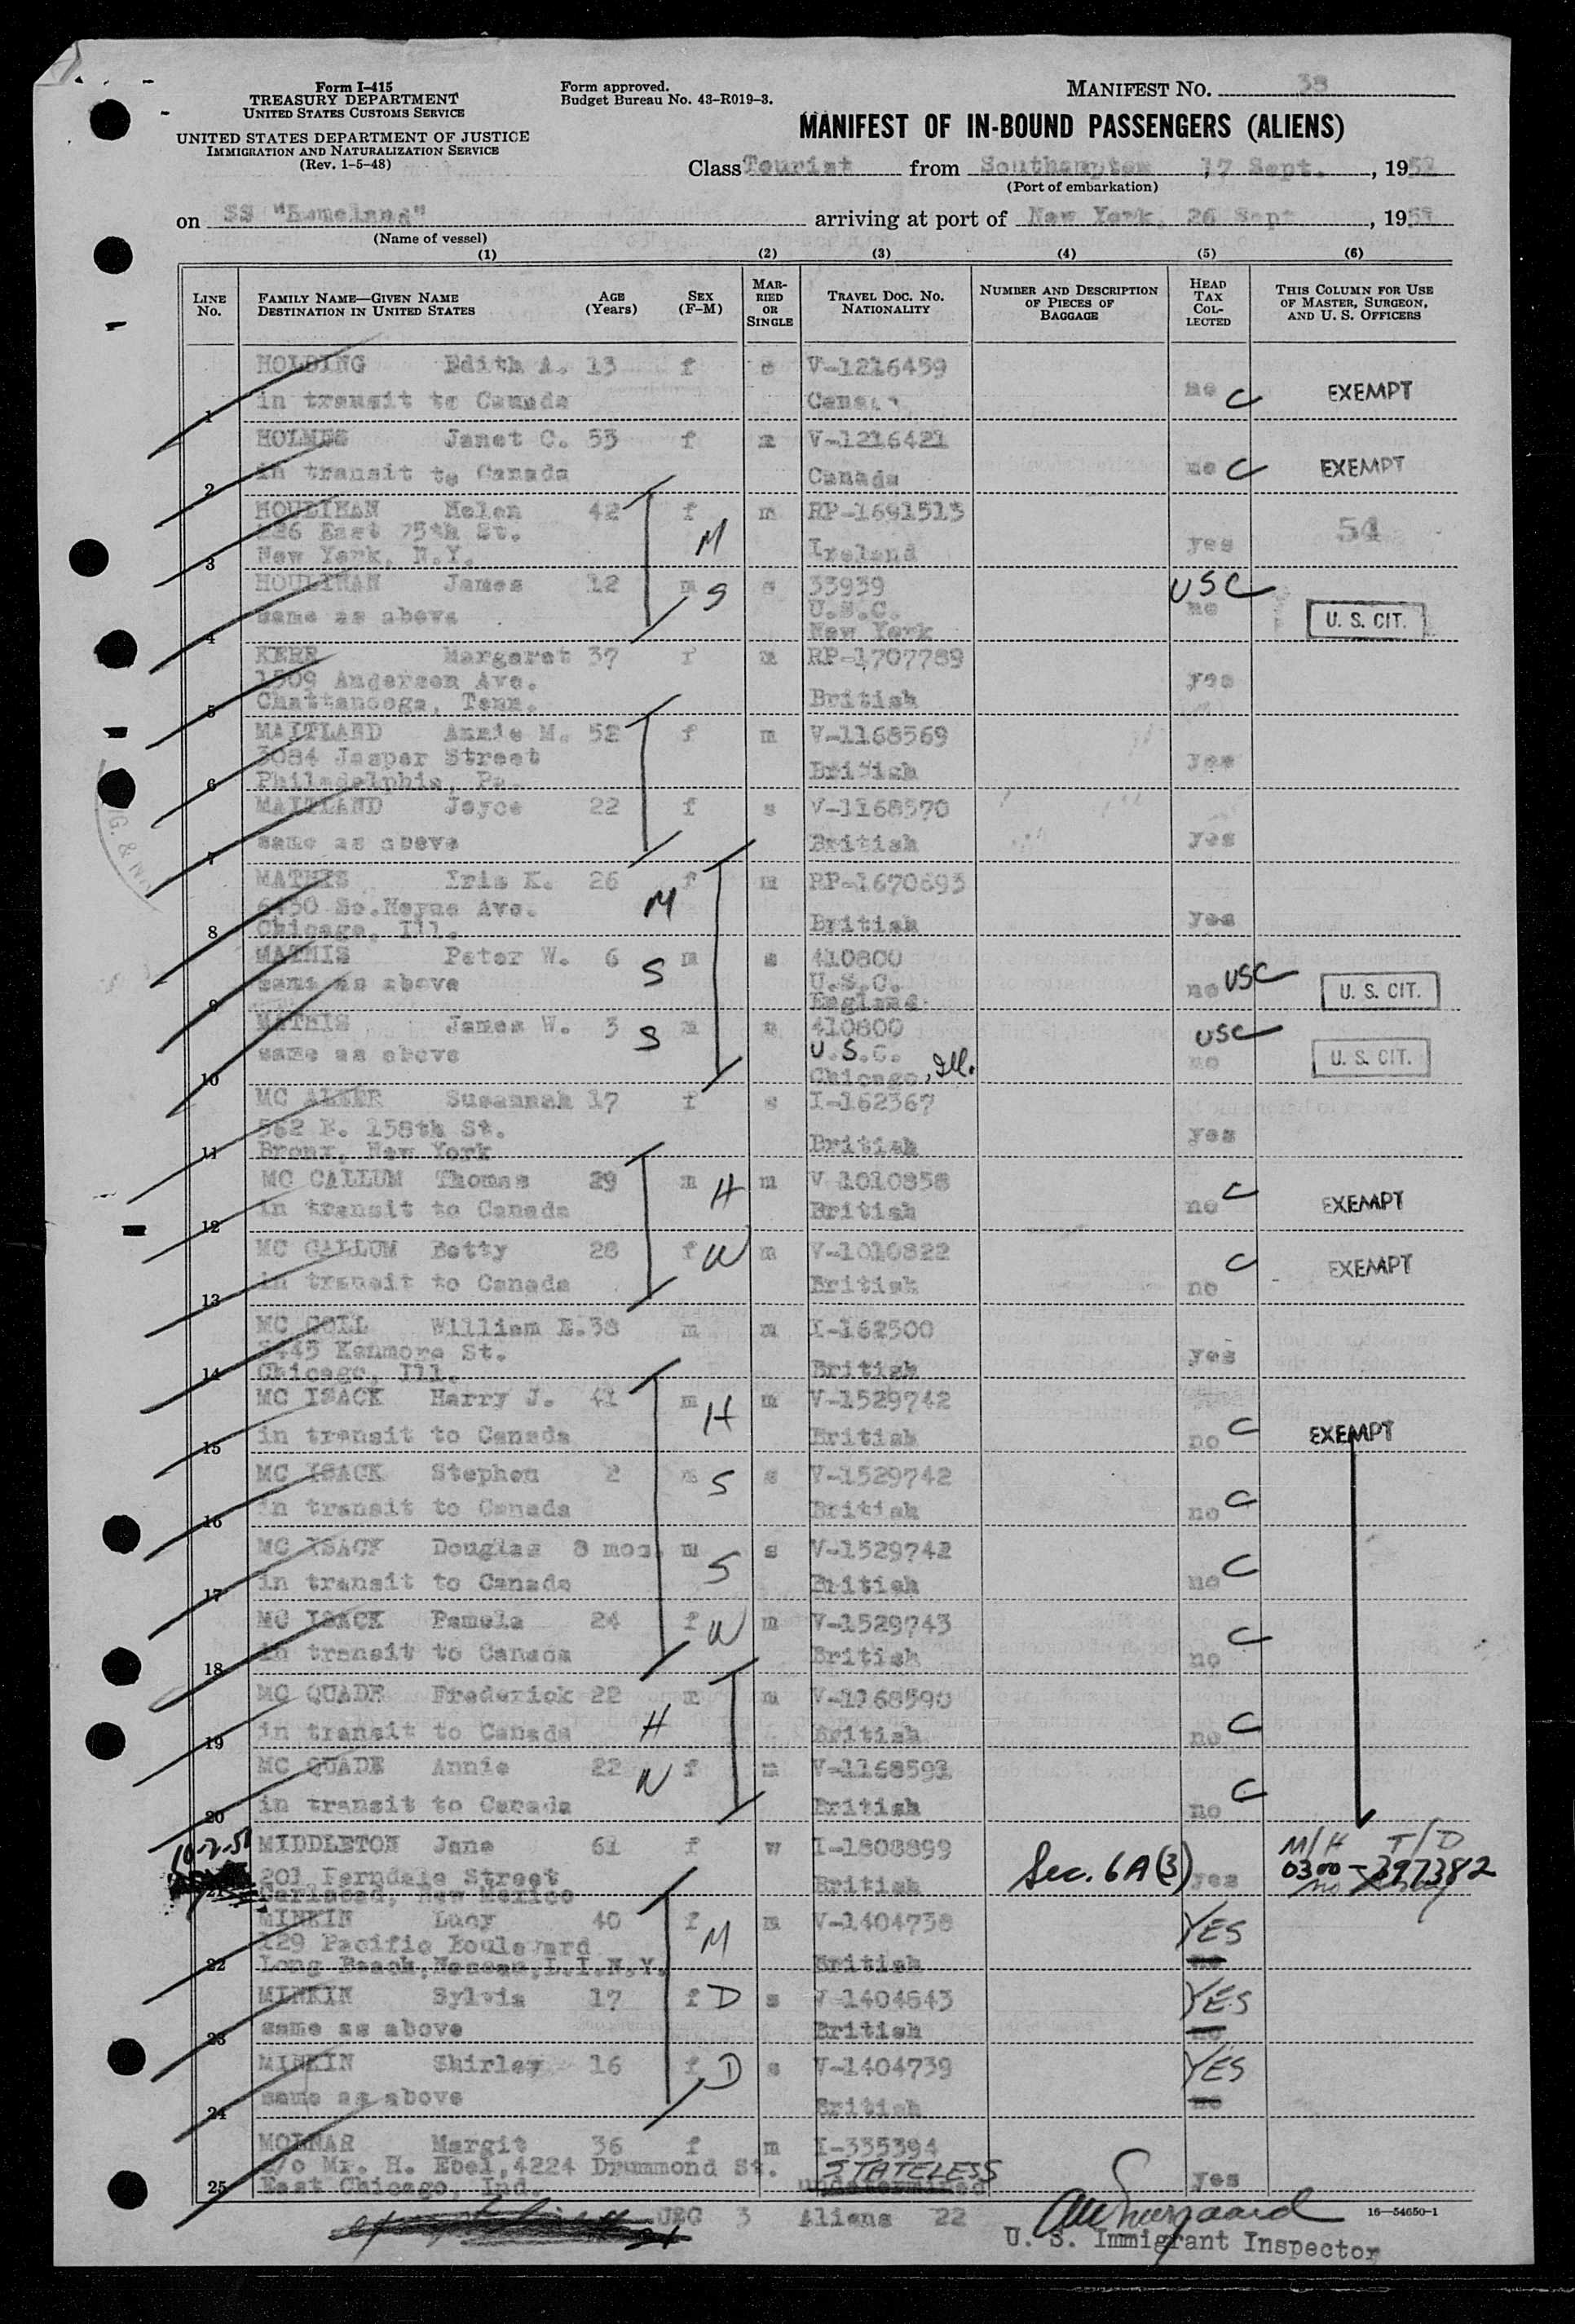 Form I-415
TREASURY DEPARTMENT
UNITED STATES CUSTOMS SERVICE
UNITED STATES DEPARTMENT OF JUSTICE
IMMIGRATION AND NATURALIZATION SERVICE
(Rev. 1-5-48)
Form approved.
Budget Bureau No. 43-R019-3.
MANIFEST NO. 38
MANIFEST OF IN-BOUND PASSENGERS (ALIENS)
Class Tourist from Southampton, 17 Sept., 1951
(Port of embarkation)
on SS "Homeland" arriving at port of New York, 26 Sept, 1951
(Name of vessel)
(1) (2) (3) (4) (5) (6)
LINE No. FAMILY NAME—GIVEN NAME DESTINATION IN UNITED STATES AGE (Years) SEX (F-M) MARRIED OR SINGLE TRAVEL DOC. NO. NATIONALITY NUMBER AND DESCRIPTION OF PIECES OF BAGGAGE HEAD TAX COLLECTED THIS COLUMN FOR USE OF MASTER, SURGEON, AND U. S. OFFICERS
HOLDING Edith A. 13 f V-1216459
1 in transit to Canada Canada no C EXEMPT
HOLMES Janet C. 53 f m V-1216421
2 in transit to Canada Canada no C EXEMPT
HOULIHAN Helen 42 f m RP-1691513
226 East 75th St. M 54
3 New York, N.Y. Ireland yes
HOULIHAN James 12 m S s 33939 USC
same as above U.S.C. no U. S. CIT.
4 New York
KERR Margaret 37 f m RP-1707789
1509 Anderson Ave. yes
5 Chattanooga, Tenn. British
MAITLAND Annie M. 52 f m V-1168569
3084 Jasper Street British yes
6 Philadelphia, Pa.
MAITLAND Joyce 22 f s V-1168570
7 same as above British yes
MATHIS Iris K. 26 f m RP-1670693
6430 So. Ave. M
8 Chicago, Ill. British yes
MATHIS Peter W. 6 S m s 410800
same as above U.S.C. no USC U. S. CIT.
9 England
MATHIS James W. 3 S m s 410800 USC
same as above U.S.C. no U. S. CIT.
10 Chicago, Ill.
MC ALEER Susannah 17 f s I-162367
562 E. 158th St. yes
11 Bronx, New York British
MC CALLUM Thomas 29 m H m V 1010858
12 in transit to Canada British no C EXEMPT
MC CALLUM Betty 28 f W m V-1010822
13 in transit to Canada British no C EXEMPT
MC COLL William E. 38 m m I-162500
3445 Kenmore St. yes
14 Chicago, Ill. British
MC ISACK Harry J. 41 m H m V-1529742
15 in transit to Canada British no C EXEMPT
MC ISACK Stephen 2 m S s V-1529742
16 in transit to Canada British no C
MC ISACK Douglas 8 mos. m S s V-1529742
17 in transit to Canada British no C
MC ISACK Pamela 24 f W m V-1529743
18 in transit to Canada British no C
MC QUADE Frederick 22 m m V-1168590
19 in transit to Canada H British no C
MC QUADE Annie 22 W f m V-1168591
20 in transit to Canada British no C
10-2-51 MIDDLETON Jane 61 f w I-1808899 M/H T/D
201 Ferndale Street British Sec. 6A(3) yes 0300-397382
21 Carlsbad, New Mexico
MINKIN Lucy 40 f M m V-1404738 YES
129 Pacific Boulevard
22 Long Beach, Nassau, L.I.N.Y. British no
MINKIN Sylvia 17 f D s V-1404643 YES
23 same as above British no
MINKIN Shirley 16 f D s V-1404739 YES
24 same as above British no
MOLNAR Margit 36 f m I-335394
c/o Mr. H. Ebel, 4224 Drummond St. STATELESS
25 East Chicago, Ind. undetermined yes
USC 3 Aliens 22
16—54650-1
U. S. Immigrant Inspector